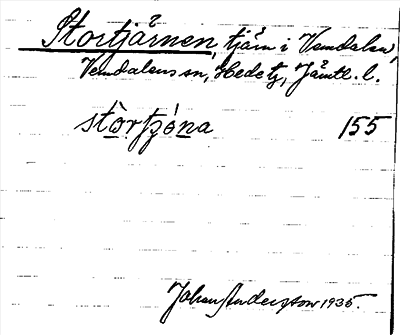 Stortjärnen, tjärn i Vemdalen,
Vemdalens sn, Hede tg, Jämtl. l.
stòrtjǿna 155
Johan Anderzson 1935.